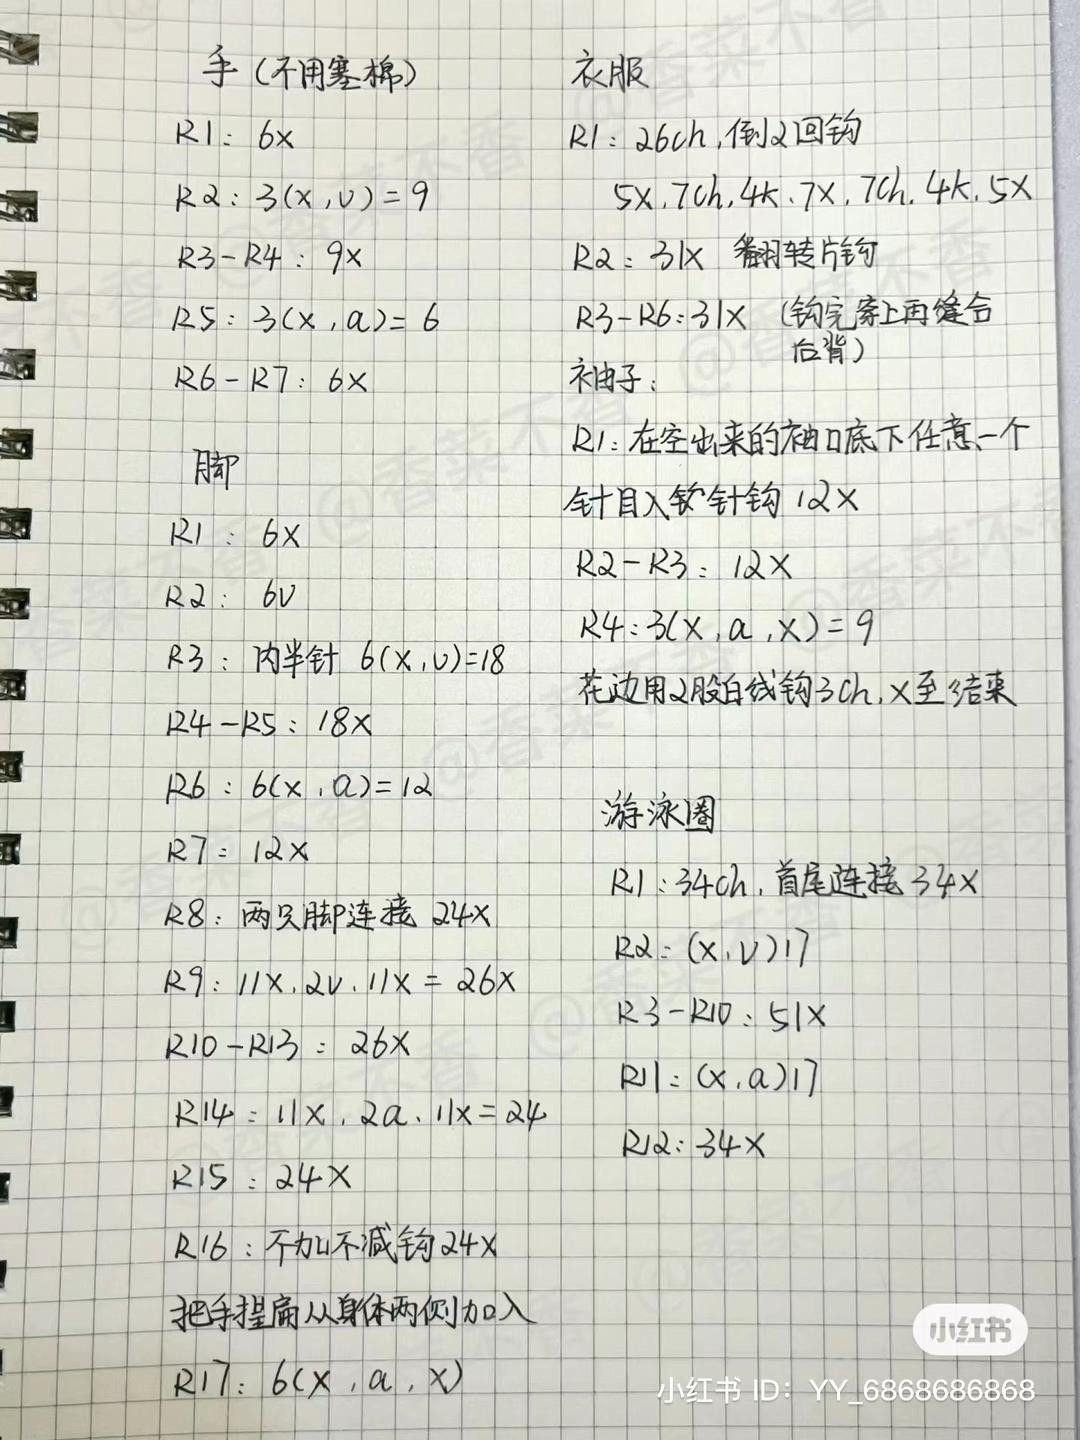 手(不用塞棉)
R1: 6x
R2: 3(x,v)=9
R3-R4: 9x
R5: 3(x,a)=6
R6-R7: 6x
脚
R1: 6x
R2: 6v
R3: 内半针 6(x,v)=18
R4-R5: 18x
R6: 6(x,a)=12
R7: 12x
R8: 两只脚连接 24x
R9: 11x,2v,11x=26x
R10-R13: 26x
R14: 11x,2a,11x=24
R15: 24x
R16: 不加不减钩24x
把手捏扁从身体两侧加入
R17: 6(x,a,x)
衣服
R1: 26ch,倒2回钩
5x,7ch,4k,7x,7ch,4k,5x
R2: 31x 翻转片钩
R3-R6: 31x (钩完穿上再缝合
后背)
袖子:
R1: 在空出来的袖口底下任意一个
针目入钩针钩12x
R2-R3: 12x
R4: 3(x,a,x)=9
花边用2股白线钩3ch,x至结束
游泳圈
R1: 34ch,首尾连接34x
R2: (x,v)17
R3-R10: 51x
R11: (x,a)17
R12: 34x
小红书
小红书 ID: YY_6868686868
@香菜不香